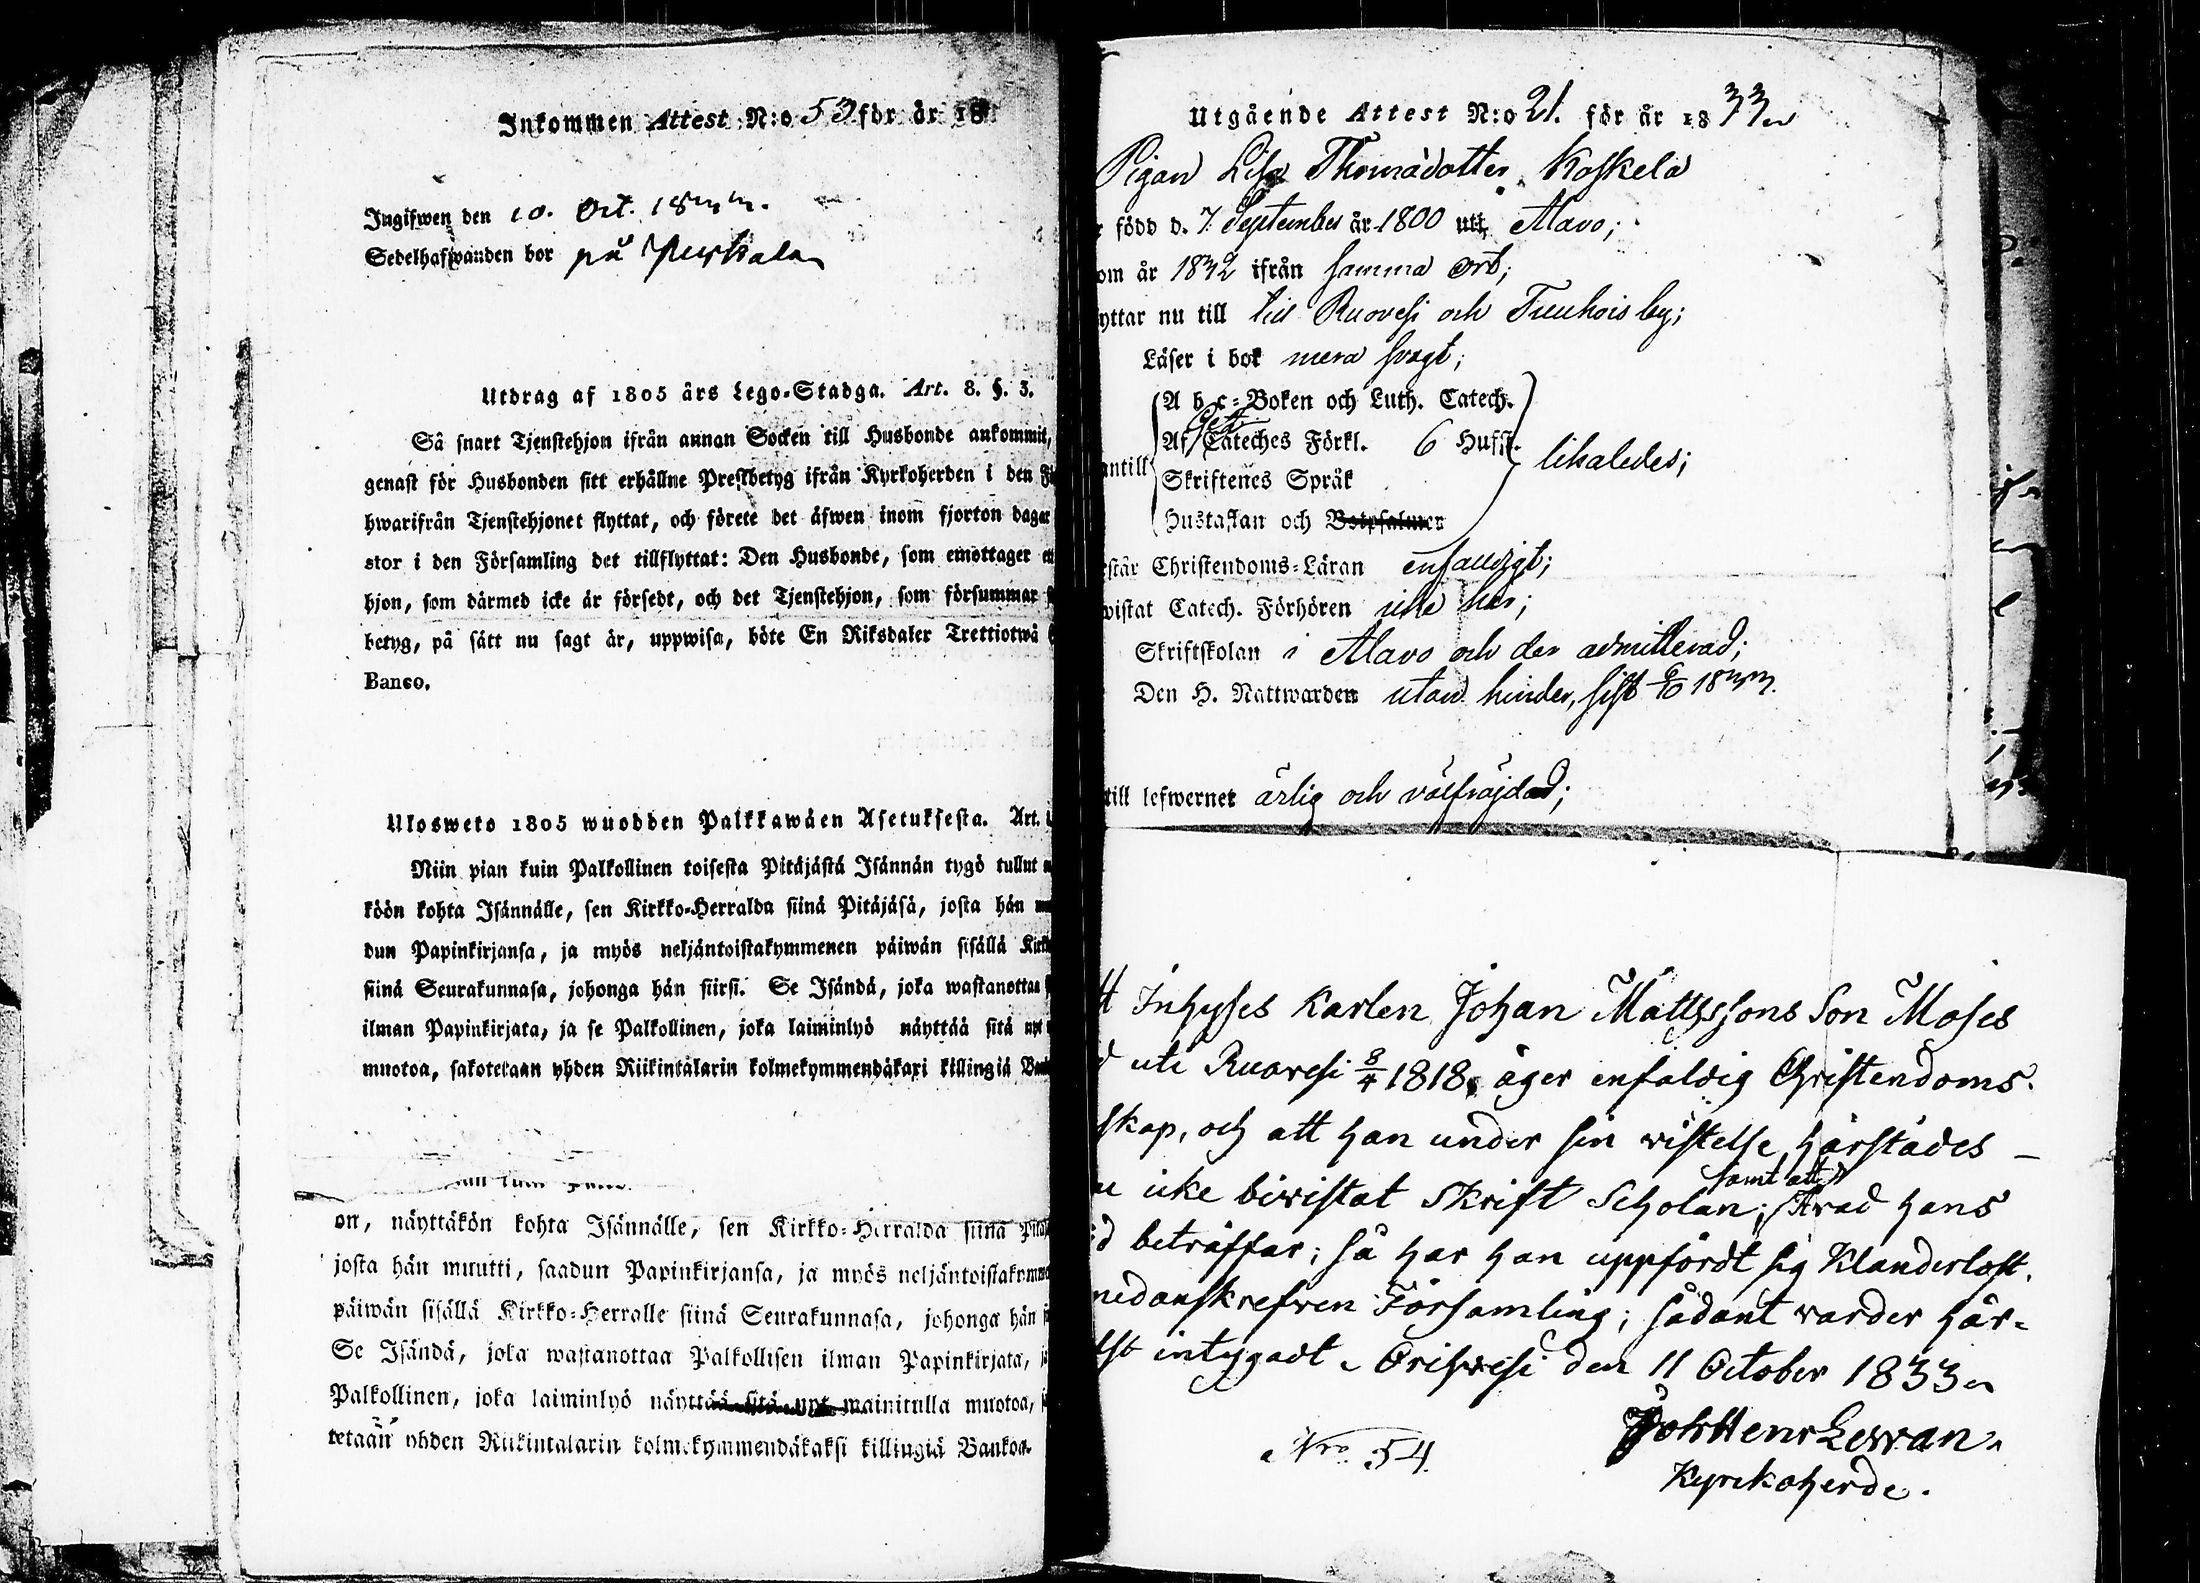 Inkommen Attest N:o 53 för år 18
Ingifwen den 10. Oct. 1833.
Sedelhafwanden bor på
Utdrag af 1805 års Lego-Stadga. Art. 8. §. 3.
Så snart Tjenstehjon ifrån annan Socken till Husbonde ankommit,
genast för Husbonden sitt erhållne Prestbetyg ifrån Kyrkoherden i den
hwarifrån Tjenstehjonet flyttat, och förete det äfwen inom fjorton dagar
stor i den Församling det tillflyttat: Den Husbonde, som emottager
hjon, som därmed icke är försedt, och det Tjenstehjon, som försummar
betyg, på sätt nu sagt är, uppwisa, böte En Riksdaler Trettiotwå
Banco.
Ulosweto 1805 wuodden Palkkawäen Asetuksesta. Art.
Niin pian kuin Palkollinen toisesta Pitäjästä Isännän tygö tullut
köön kohta Isännälle, sen Kirkko-Herralda siinä Pitäjäsä, josta hän
dun Papinkirjansa, ja myös neljäntoistakymmenen päiwän sisällä
siinä Seurakunnasa, johonga hän siirsi. Se Isändä, joka wastanottaa
ilman Papinkirjata, ja se Palkollinen, joka laiminlyö näyttää sitä nyt
muotoa, sakotetaan yhden Riikintalarin kolmekymmendäkaxi killingiä
on, näyttäkön kohta Isännälle, sen Kirkko-Herralda siinä
josta hän muutti, saadun Papinkirjansa, ja myös neljäntoistakymme
päiwän sisällä Kirkko-Herralle siinä Seurakunnasa, johonga hän
Se Isändä, joka wastanottaa Palkollisen ilman Papinkirjata,
Palkollinen, joka laiminlyö näyttää sitä nyt mainitulla muotoa,
tetaan yhden Riikintalarin kolmekymmendäkaksi killingiä Bankoa.
Utgående Attest N:o 21. för år 1833
Pigan Lisa Thomädotter Koskela
född d. 7 September år 1800 uti Alavo;
om år 1832 ifrån samma ort;
yttar nu till till Ruovesi och Tuuhois by;
Läser i bok mera svagt;
A b c-Boken och Luth. Catech.
Af Cateches Förkl. 6 Hufst.
antill likaledes;
Skriftenes Språk
Hustaflan och Botpsalmen
står Christendoms-Läran enfaldigt;
wistat Catech. Förhören icke här;
Skriftskolan i Alavo och der admitterad;
Den H. Nattwarden utan hinder, sist 6/10 1833.
till lefwernet ärlig och välfräjdad;
tt Inhyses Karlen Johan Mattssons Son Moses
d uti Ruovesi 8/4 1818, äger enfaldig Christendoms
skap, och att han under sin vistelse härstädes
icke bivistat Skrift Scholan; samt att hvad hans
d beträffar; så har han uppfördt sig Klanderlöst.
nedanskrefven Församling; sådant varder här-
lst intygadt. Orihvesi den 11 October 1833
Joh Henr Levvan.
Kyrckoherde.
Nro 54.